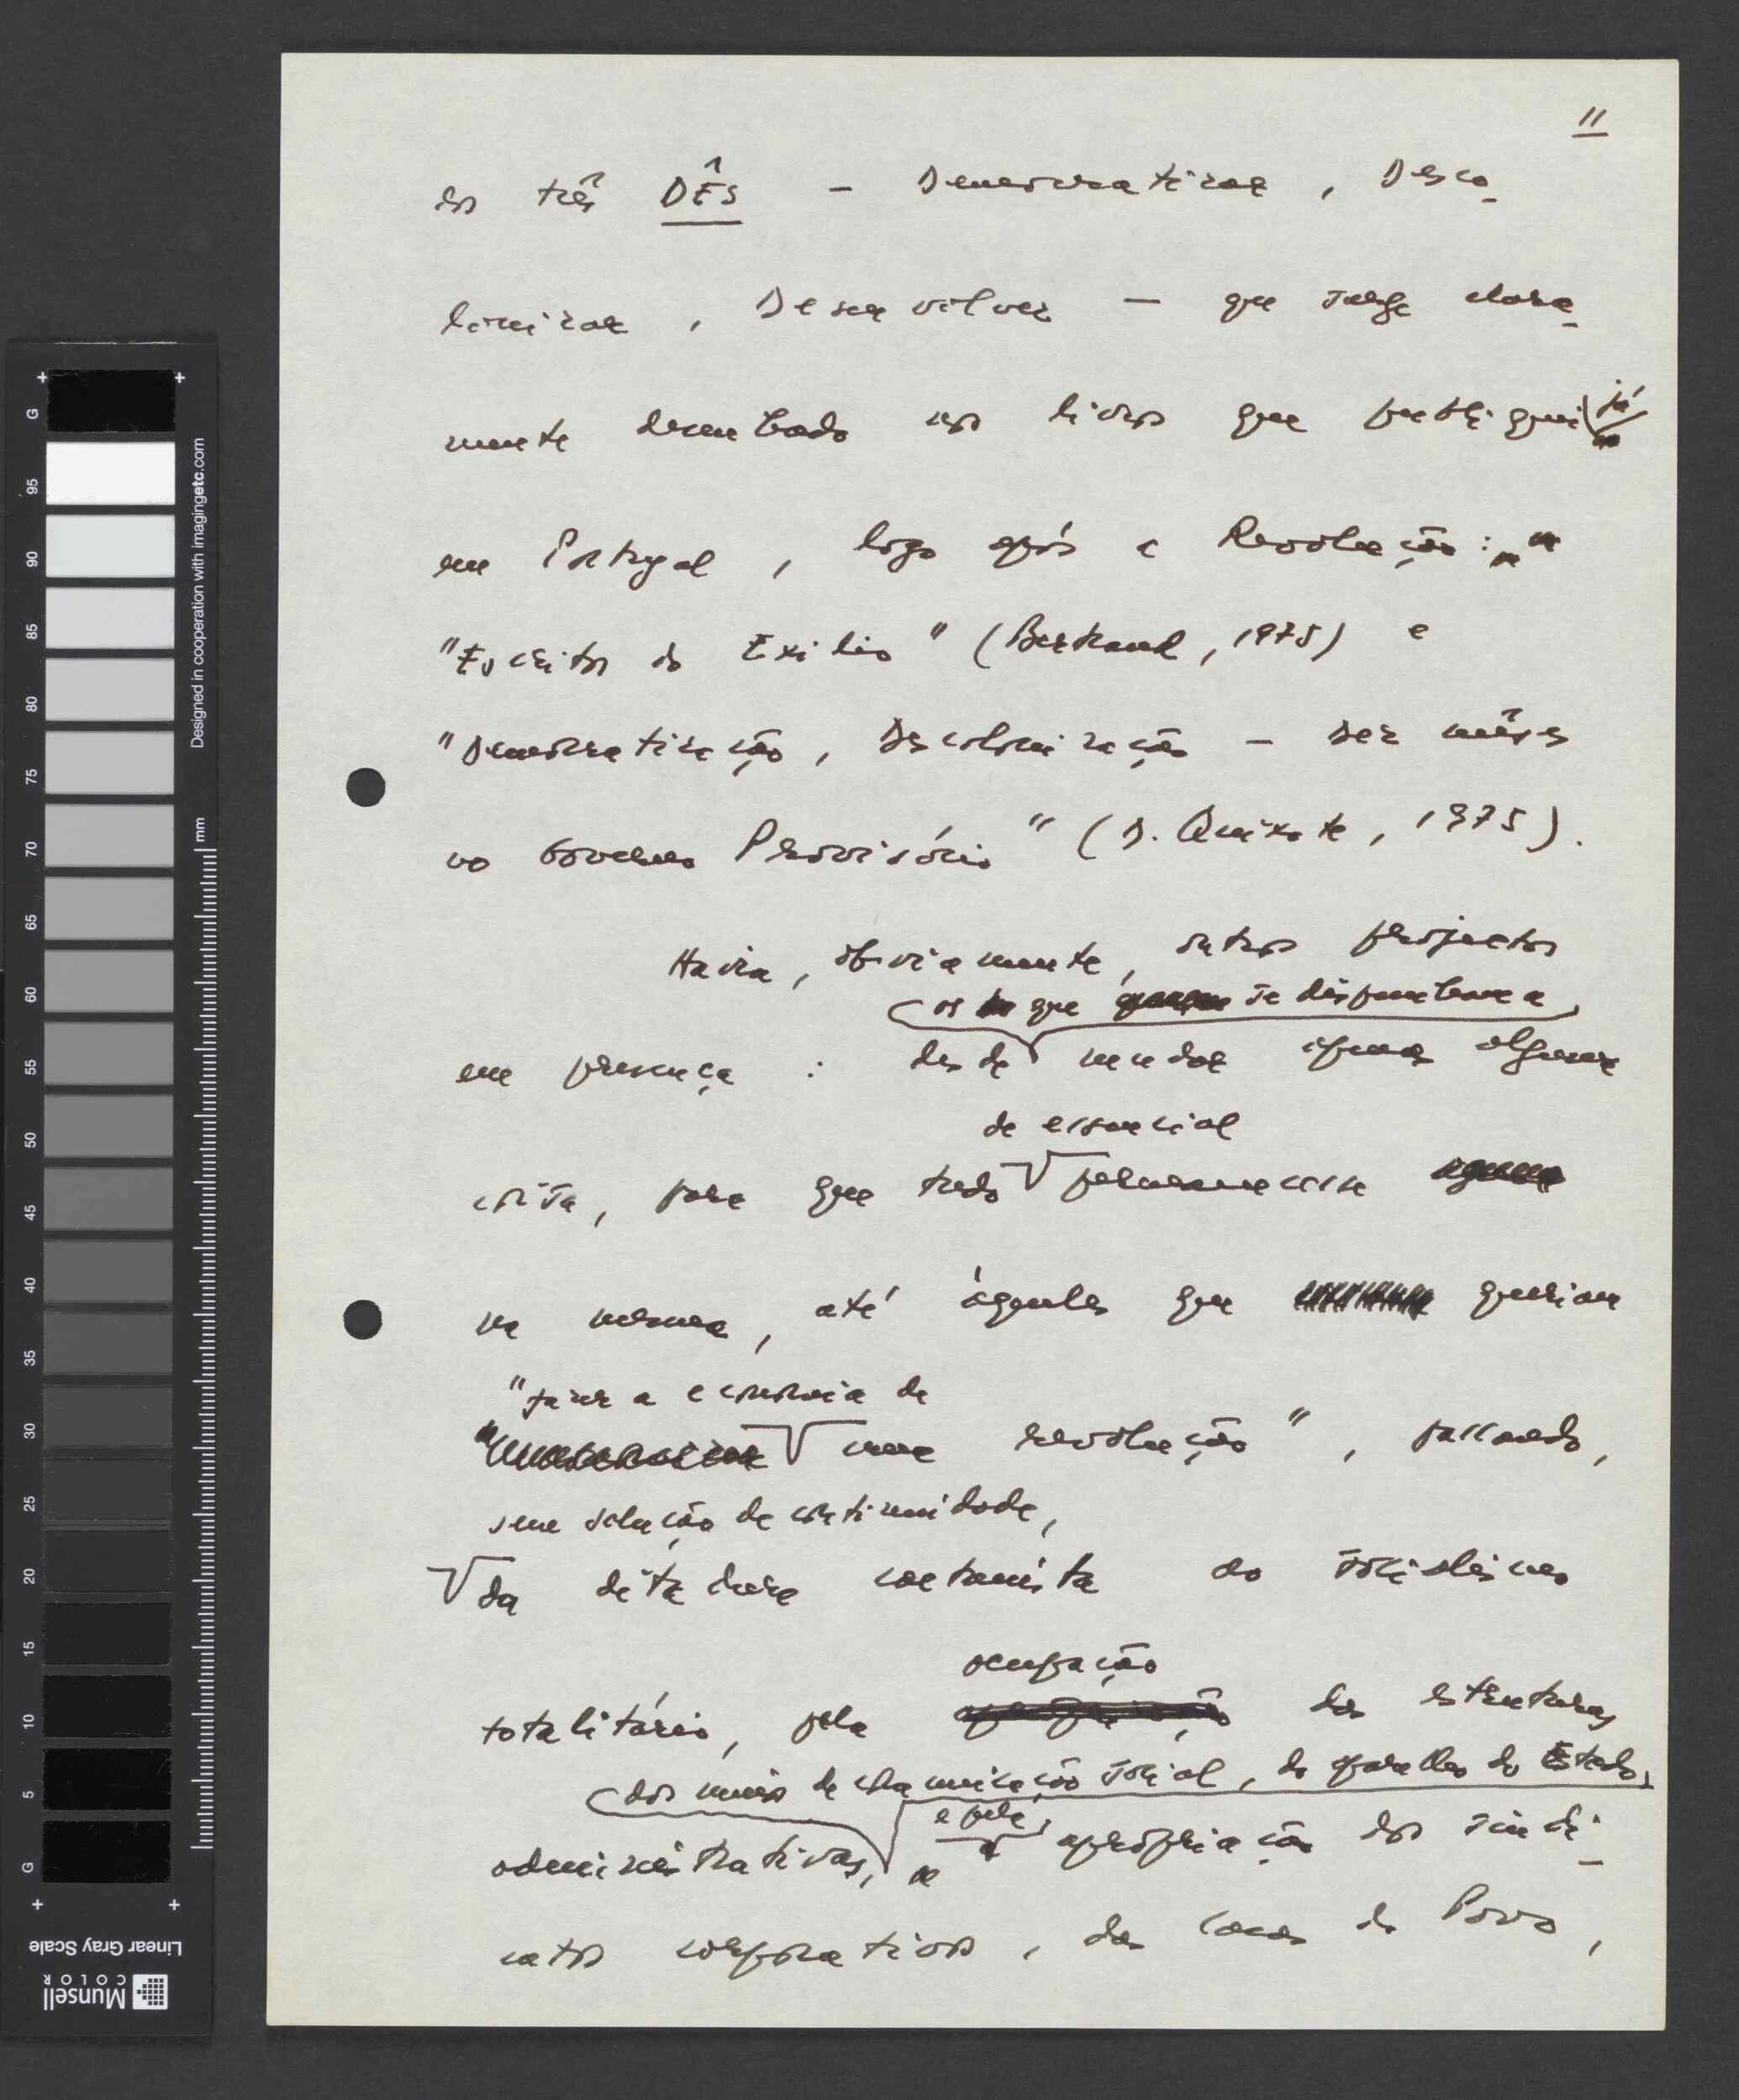 11
os três DÊS - Democratizar, Desco-
lonizar, Desenvolver — que surge clara-
mente desenhado nos livros que publiquei já
em Portugal, logo após a Revolução:
"Escritos do Exílio" (Bertrand, 1975) e
"Democratização, Descolonização - Dez mêses
no Governo Provisório" (D. Quixote, 1975).
Havia, obviamente, outros projectos
os que se dispunham a
em presença : desde mudar apenas alguma
de essencial
coisa, para que tudo permanecesse
na mesma, até àqueles que queriam
"fazer a economia de
uma revolução", passando,
sem solução de continuidade,
da ditadura caetanista ao socialismo
ocupação
totalitário, pela das estruturas
dos meios de comunicação social, do aparelho do Estado,
e pela
administrativas, apropriação dos sindi-
catos corporativos, das Casas do Povo,
Designed in cooperation with imagingetc.com
mm
G 95 90 85 80 75 70 65 60 55 50 45 40 35 30 25 20 15 10 5 G
Linear Gray Scale
Munsell
COLOR